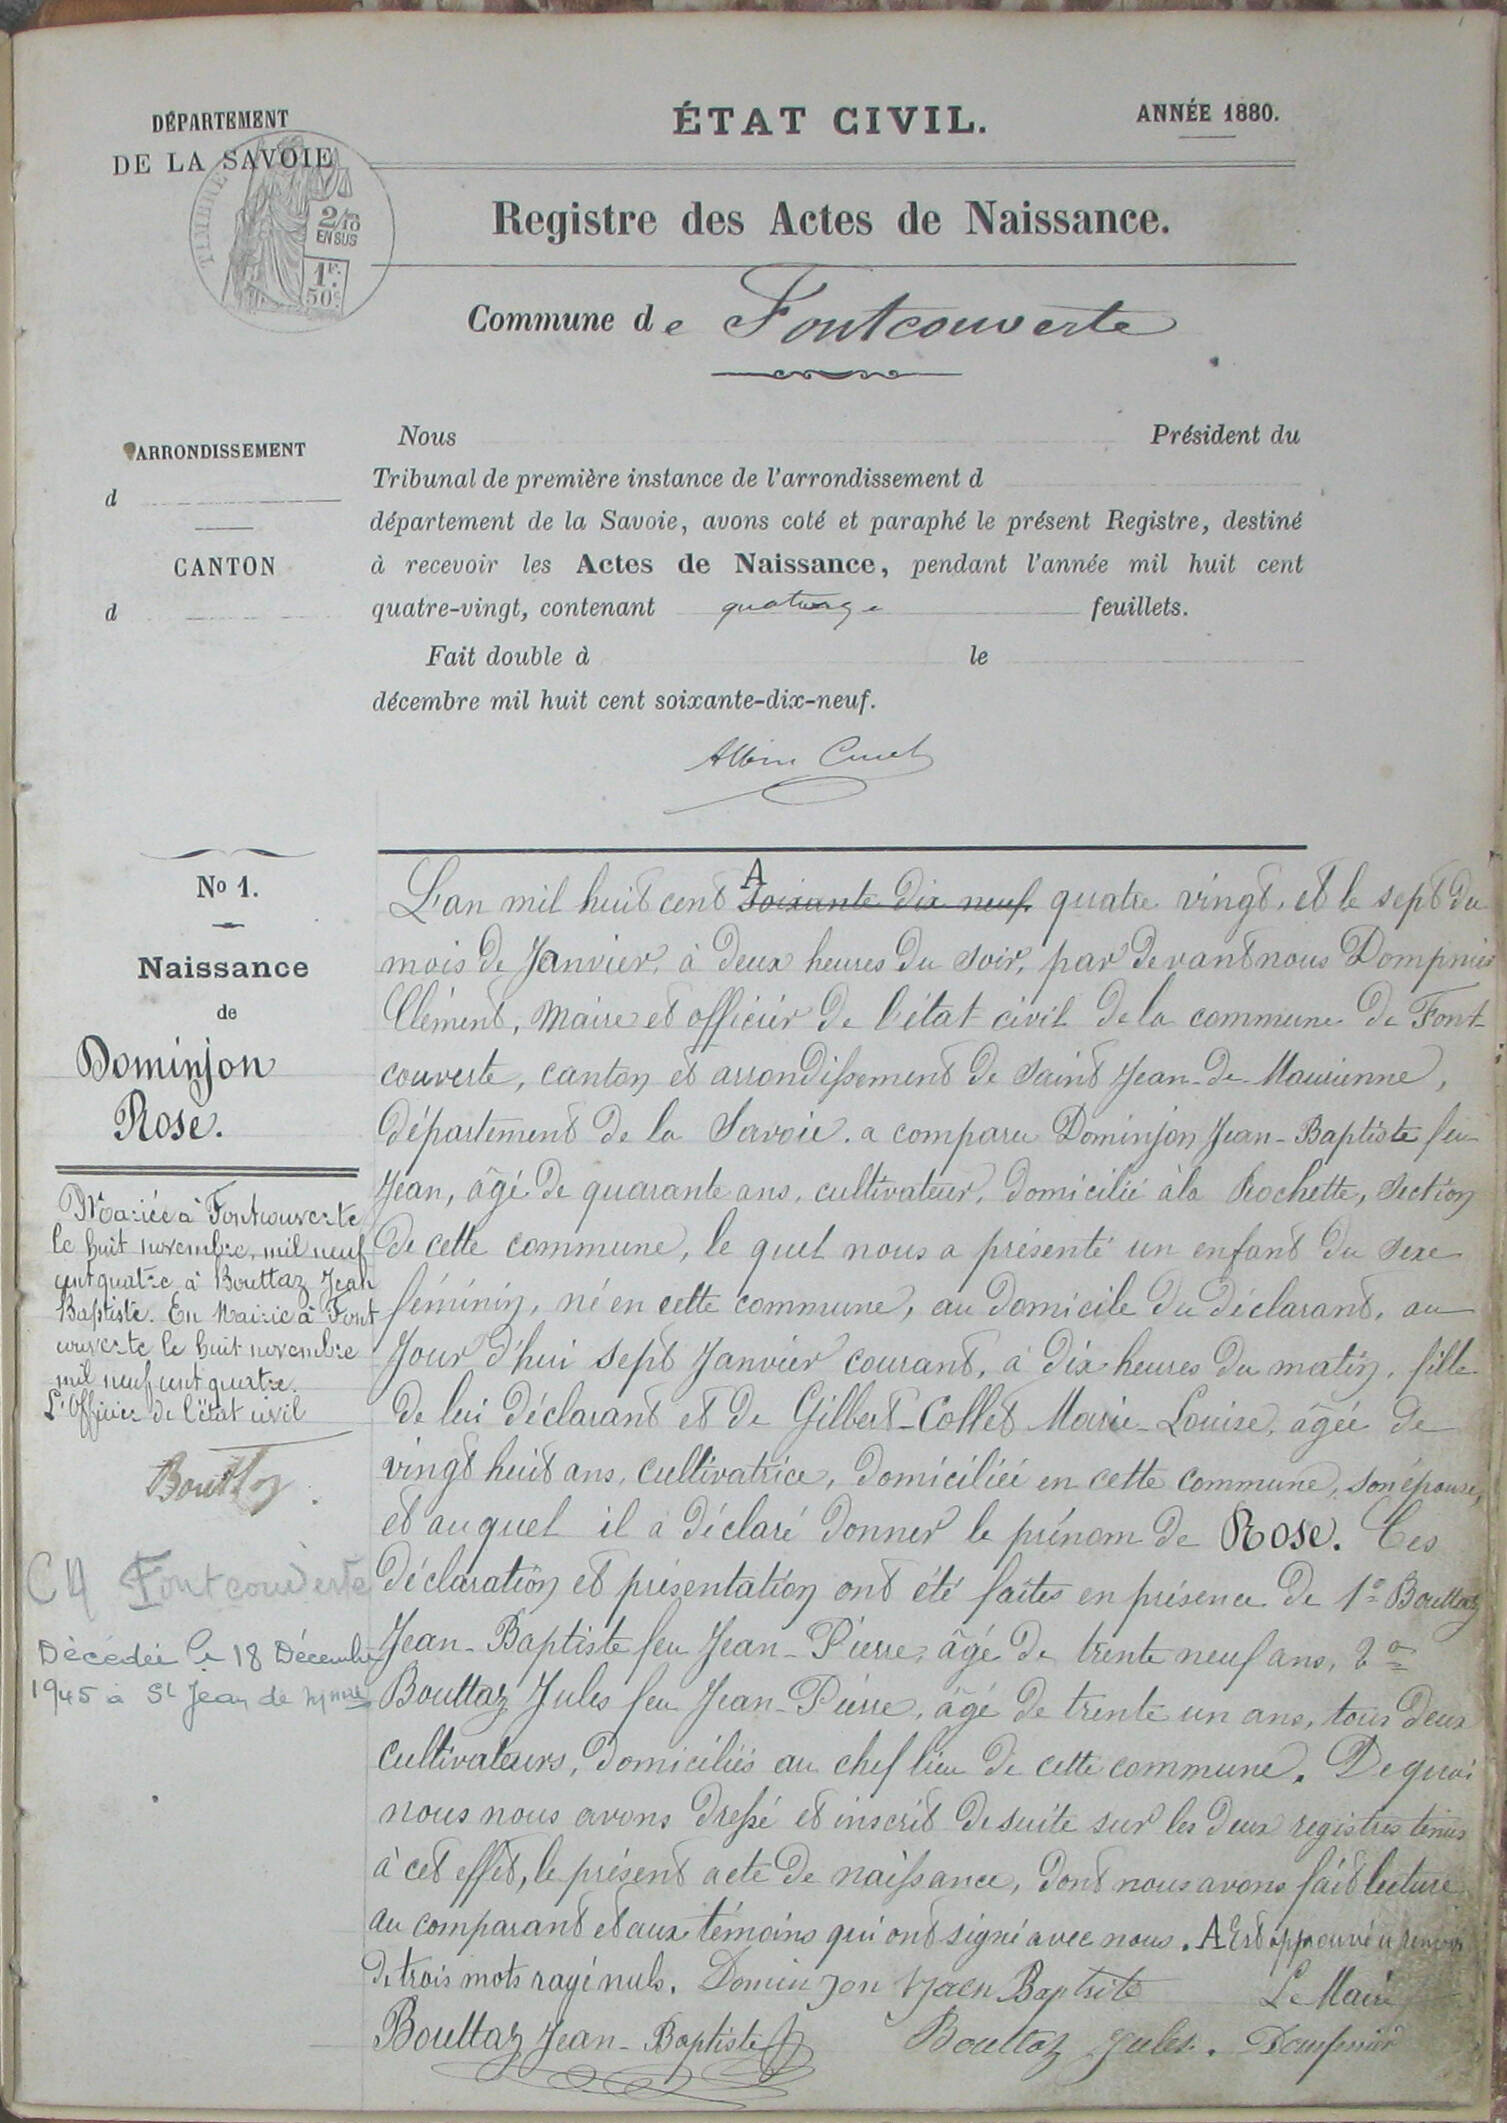 DÉPARTEMENT
DE LA SAVOIE
TIMBRE
2/10
EN SUS
1F.
50c
ÉTAT CIVIL.
ANNÉE 1880.
Registre des Actes de Naissance.
Commune de Fontcouverte
ARRONDISSEMENT
d
CANTON
d
Nous Président du
Tribunal de première instance de l'arrondissement d
département de la Savoie, avons coté et paraphé le présent Registre, destiné
à recevoir les Actes de Naissance, pendant l'année mil huit cent
quatre-vingt, contenant quatorze feuillets.
Fait double à le
décembre mil huit cent soixante-dix-neuf.
No 1.
Naissance
de
Dominjon
Rose.
Mariée à Fontcouverte
le huit novembre, mil neuf
cent quatre à Bouttaz Jean
Baptiste. En Mairie à Font
couverte le huit novembre
mil neuf cent quatre.
L'Officier de l'état civil
Bouttaz
C4 Fontcouverte
Décédée le 18 Décembre
1945 à St Jean de Mnne
A
L'an mil huit cent soixante dix neuf quatre vingt, et le sept du
mois de Janvier, à deux heures du soir, par devant nous Dompnier
Clément, Maire et officier de l'état civil de la commune de Font-
couverte, canton et arrondissement de Saint Jean-de-Maurienne,
département de la Savoie. a comparu Dominjon Jean-Baptiste feu
Jean, âgé de quarante ans, cultivateur, domicilié à la Rochette, section
de cette commune, le quel nous a présenté un enfant du sexe
féminin, né en cette commune, au domicile du déclarant, au
jour d'hui sept Janvier courant, à dix heures du matin, fille
de lui déclarant et de Gilbert-Collet Marie-Louise, âgée de
vingt huit ans, cultivatrice, domiciliée en cette commune, son épouse,
et au quel il a déclaré donner le prénom de Rose. Ces
déclaration et présentation ont été faites en présence de 1º Bouttaz
Jean-Baptiste feu Jean-Pierre, âgé de trente neuf ans, 2º
Bouttaz Jules feu Jean-Pierre, âgé de trente un ans, tous deux
cultivateurs, domiciliés au chef lieu de cette commune. De quoi
nous nous avons dressé et inscrit de suite sur les deux registres tenus
à cet effet, le présent acte de naissance, dont nous avons fait lecture
au comparant et aux témoins qui ont signé avec nous. A Est approuvé le renvoi
de trois mots rayé nuls. Dominjon Jaen Baptsite Le Maire
Bouttaz Jean-Baptiste Bouttaz Jules. Dompnier